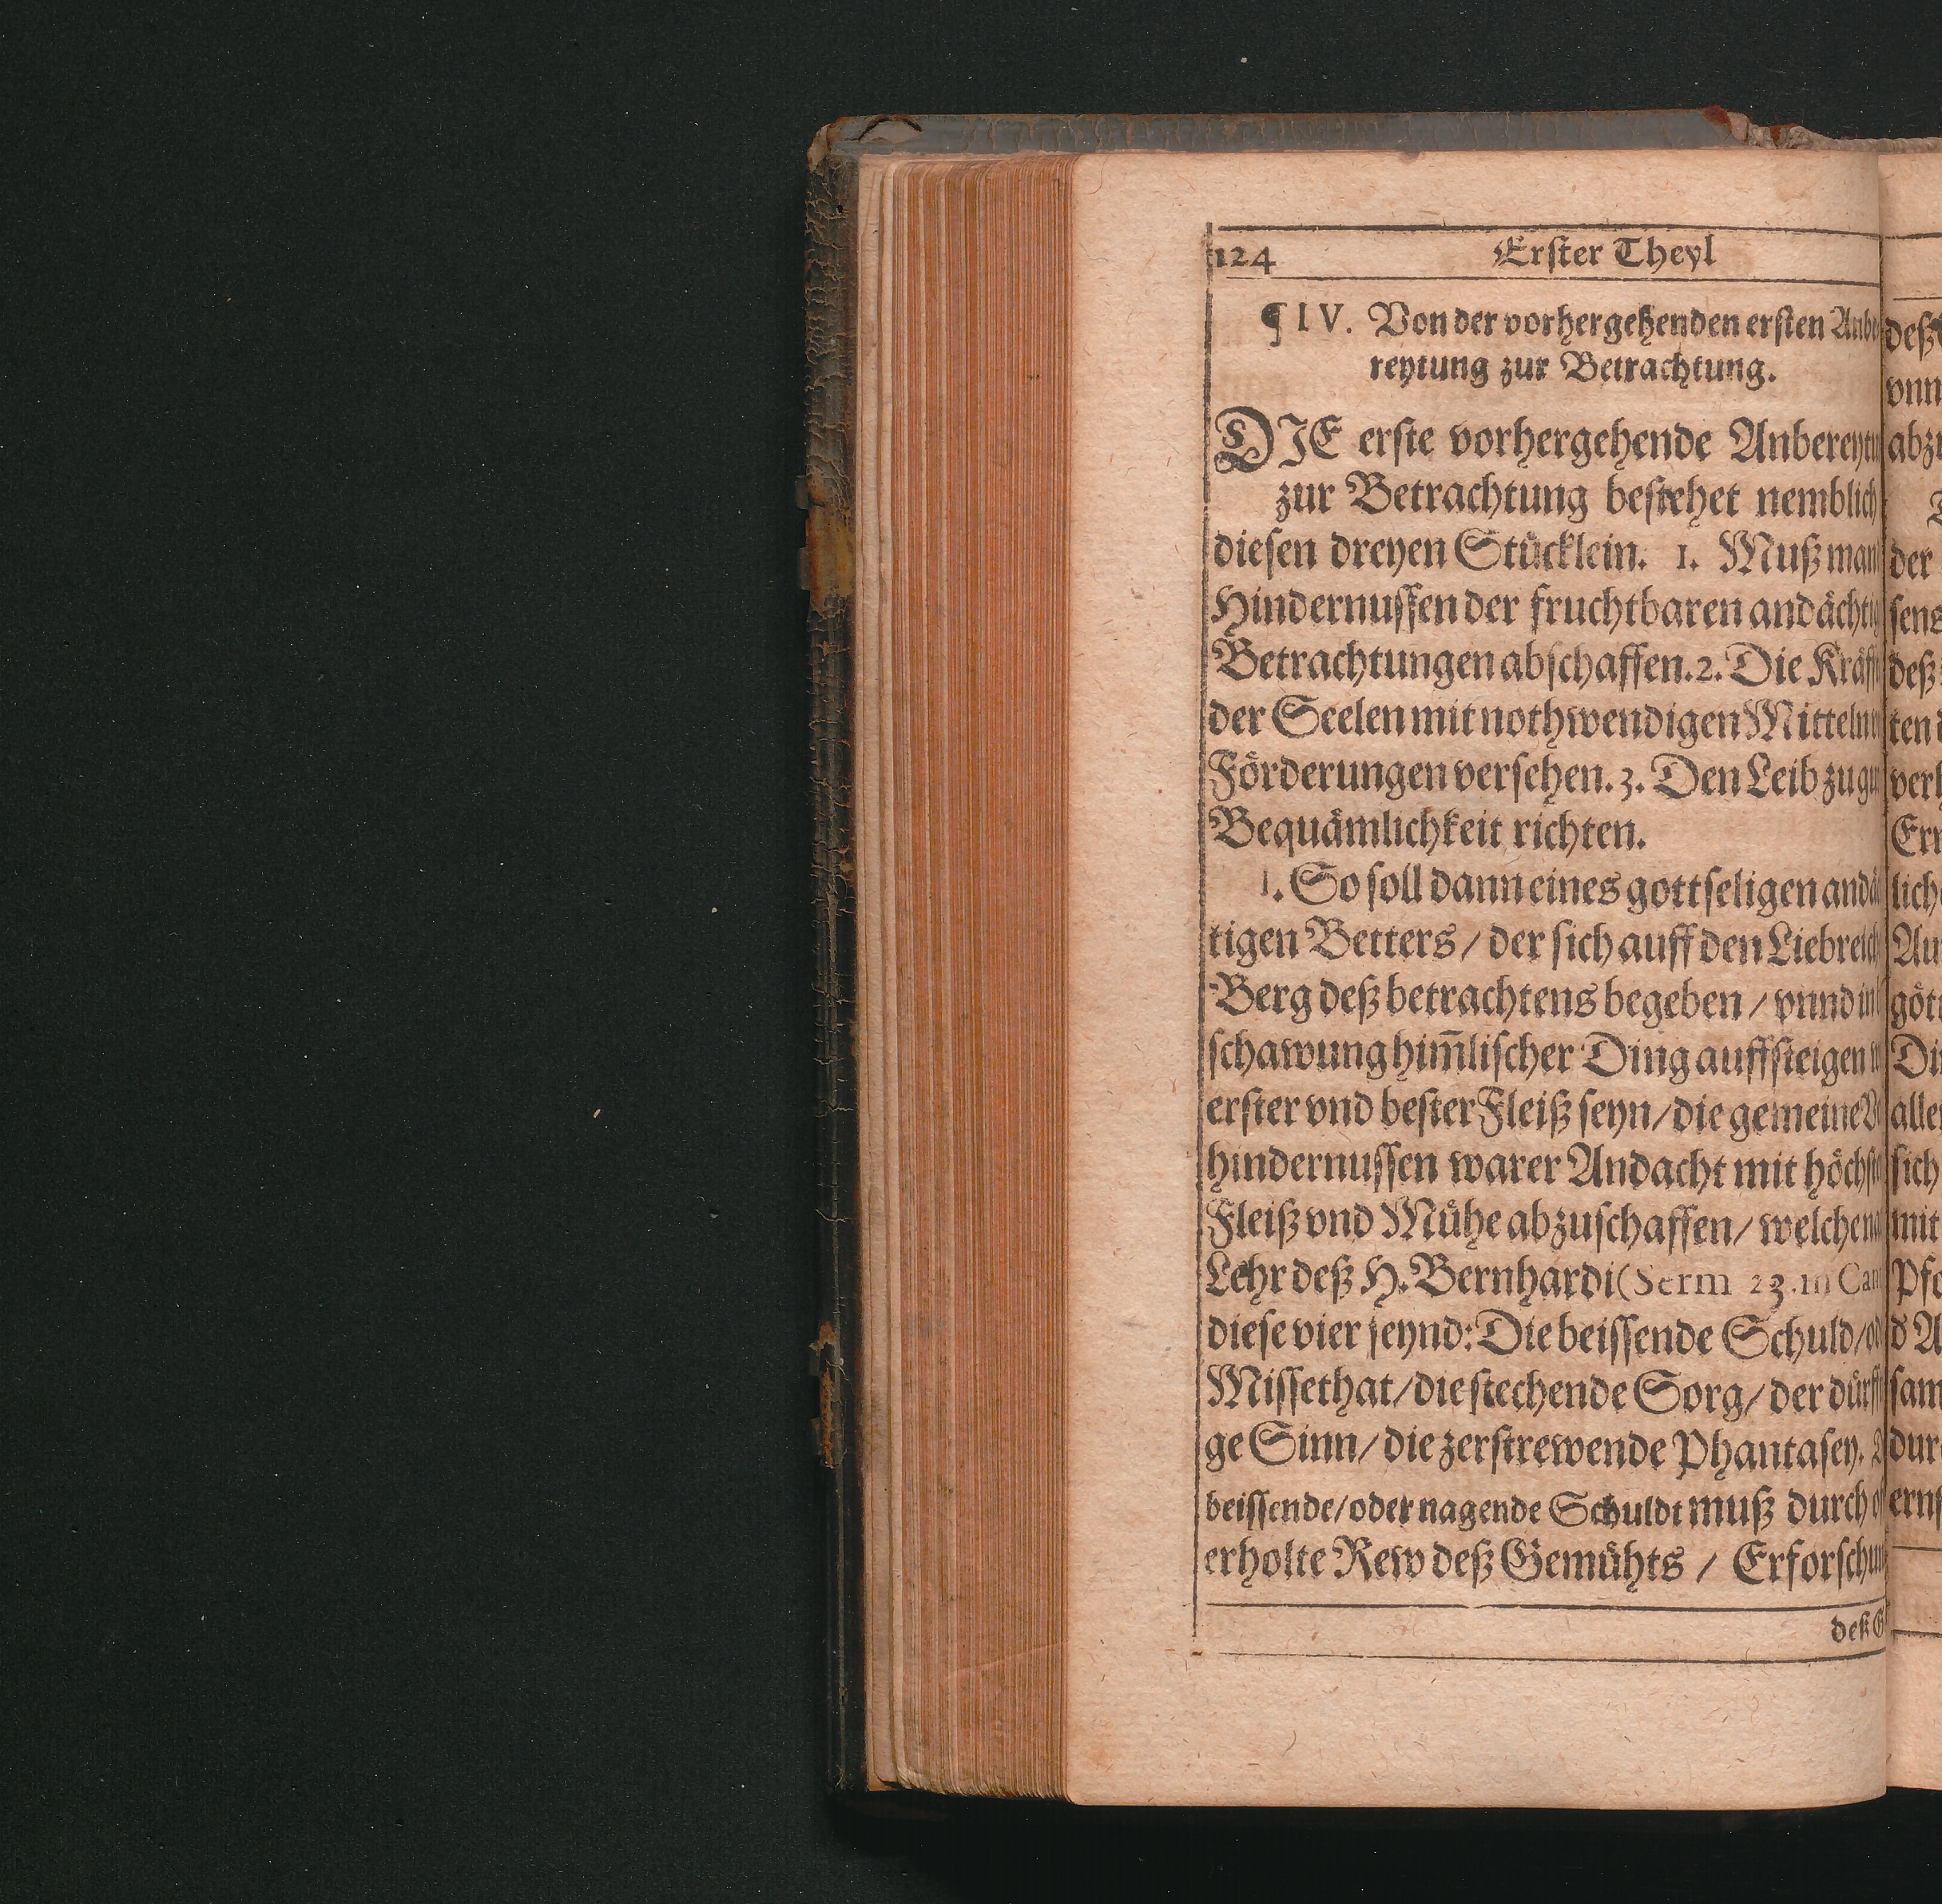 124 Erster Theyl
¶ IV. Von der vorhergehenden ersten
reytung zur Betrachtung.
DIE erste vorhergehende
zur Betrachtung bestehet nemblich
diesen dreyen Stücklein. 1. Muß man
Hindernussen der fruchtbaren
Betrachtungen abschaffen. 2. Die
der Seelen mit nothwendigen Mitteln
Förderungen versehen. 3. Den Leib zu
Bequämlichkeit richten.
1. So soll dann eines gottseligen
tigen Betters / der sich auff den
Berg deß betrachtens begeben / vnnd
schawung him̃lischer Ding auffsteigen
erster vnd bester Fleiß seyn / die gemeine
hindernussen warer Andacht mit
Fleiß vnd Mühe abzuschaffen / welche
Lehr deß H. Bernhardi (Serm 23. in
diese vier seynd: Die beissende Schuld /
Missethat / die stechende Sorg / der
ge Sinn / die zerstrewende Phantasey.
beissende / oder nagende Schuldt muß durch
erholte Rew deß Gemühts /
deß
deß
vnn
der
sens
deß
ten
Au
Di
sich
mit